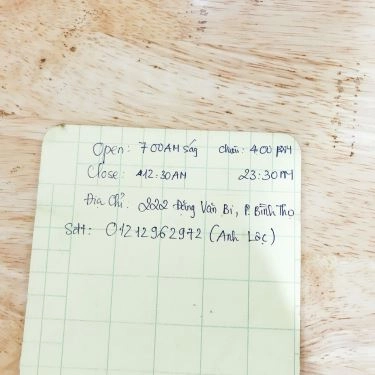 Open: 700AM sáng chiều: 400 PM
Close: 12:30AM 23:30PM
Địa chỉ: 222 Đặng Văn Bi, P. Bình Thọ
Sđt: 01212962972 (Anh Lộc)